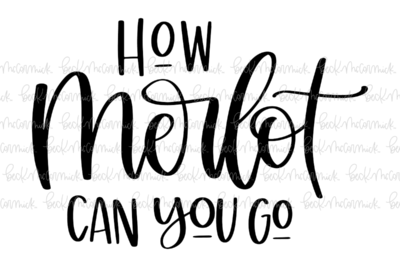 How
Merlot
CAN YOU GO